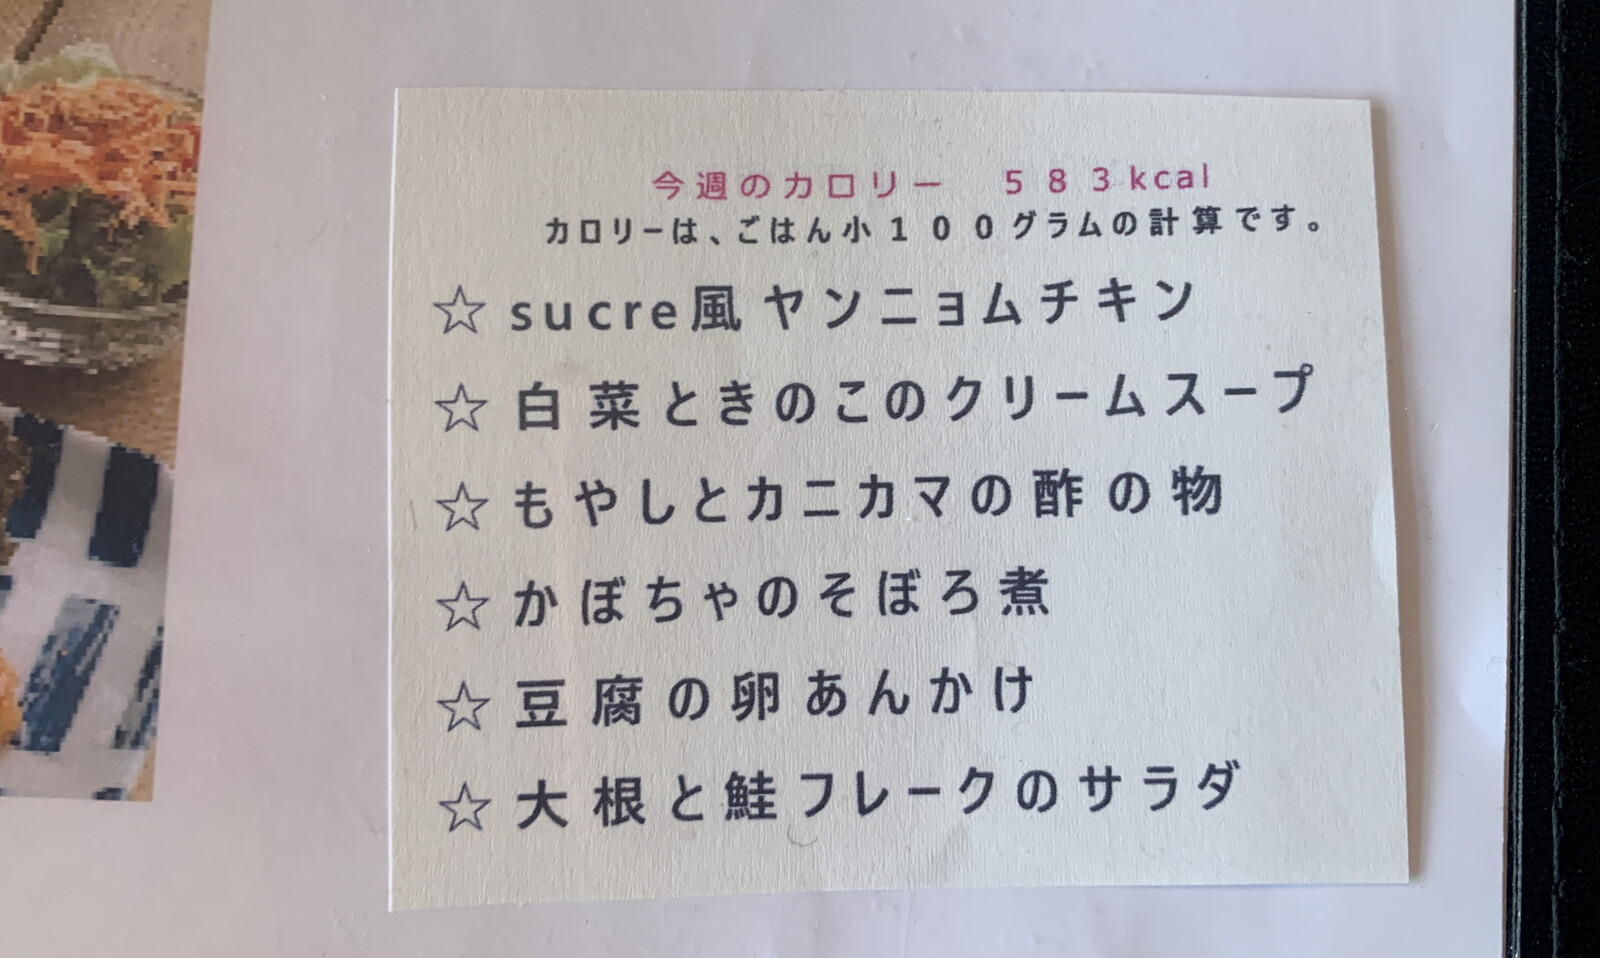 今週のカロリー　５８３kcal
カロリーは、ごはん小１００グラムの計算です。
☆sucre風ヤンニョムチキン
☆白菜ときのこのクリームスープ
☆もやしとカニカマの酢の物
☆かぼちゃのそぼろ煮
☆豆腐の卵あんかけ
☆大根と鮭フレークのサラダ